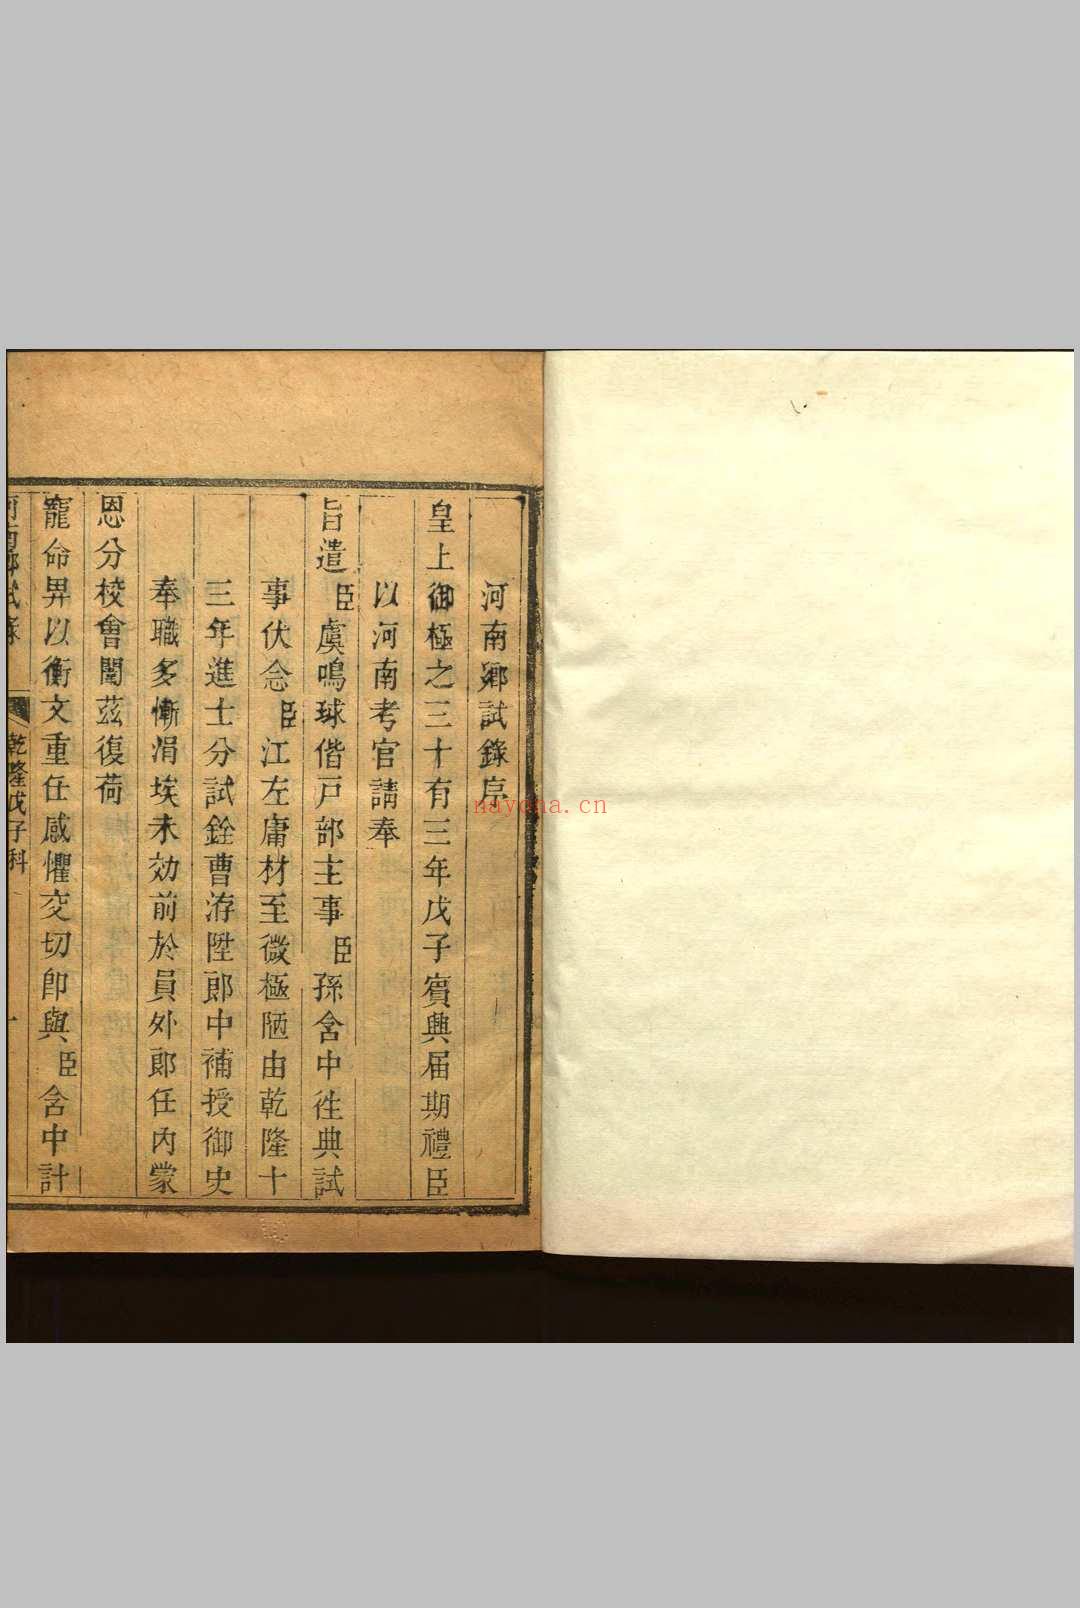 河南鄉試錄序
皇上御極之三十有三年戊子賓興届期禮臣
以河南考官請奉
旨遣臣虞鳴球偕戸部主事臣孫含中徃典試
事伏念臣江左庸材至微極陋由乾隆十
三年進士分試銓曹洊陞郎中補授御史
奉職多慚涓埃未効前於員外郎任內蒙
恩分校會闈茲復荷
寵命畀以衡文重任感懼交切卽與臣含中計
河南鄉試錄
乾隆戊子科
一
nayona.cn